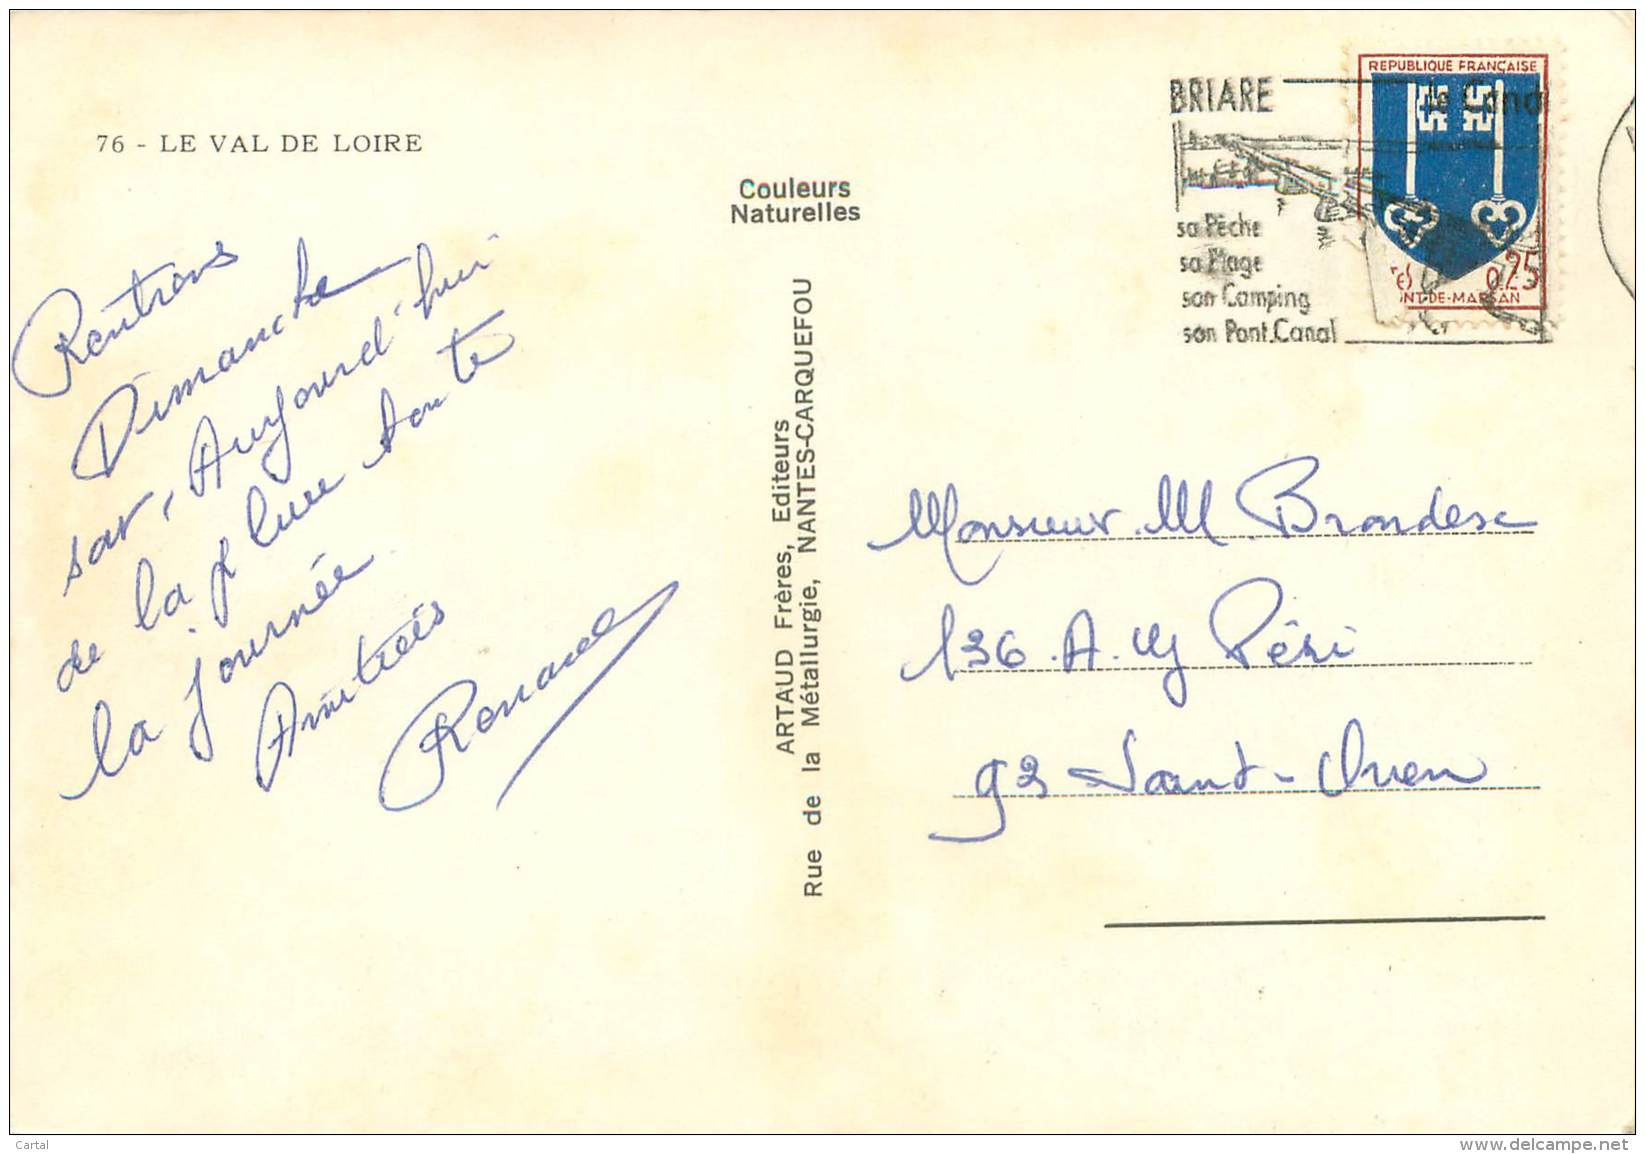 76 - LE VAL DE LOIRE
Couleurs
Naturelles
Rentrons
Dimanche
soir, Aujourd'hui
de la pluie toute
la journée
Amitiés
Renaud
ARTAUD Frères, Editeurs
Rue de la Métallurgie, NANTES-CARQUEFOU
BRIARE
le Canal
sa Pêche
sa Plage
son Camping
son Pont.Canal
REPUBLIQUE FRANÇAISE
0.25
NT-DE-MARSAN
Monsieur M. Brondesc
136 A. Gy Péri
93 Saint-Ouen
Cartal
www.delcampe.net